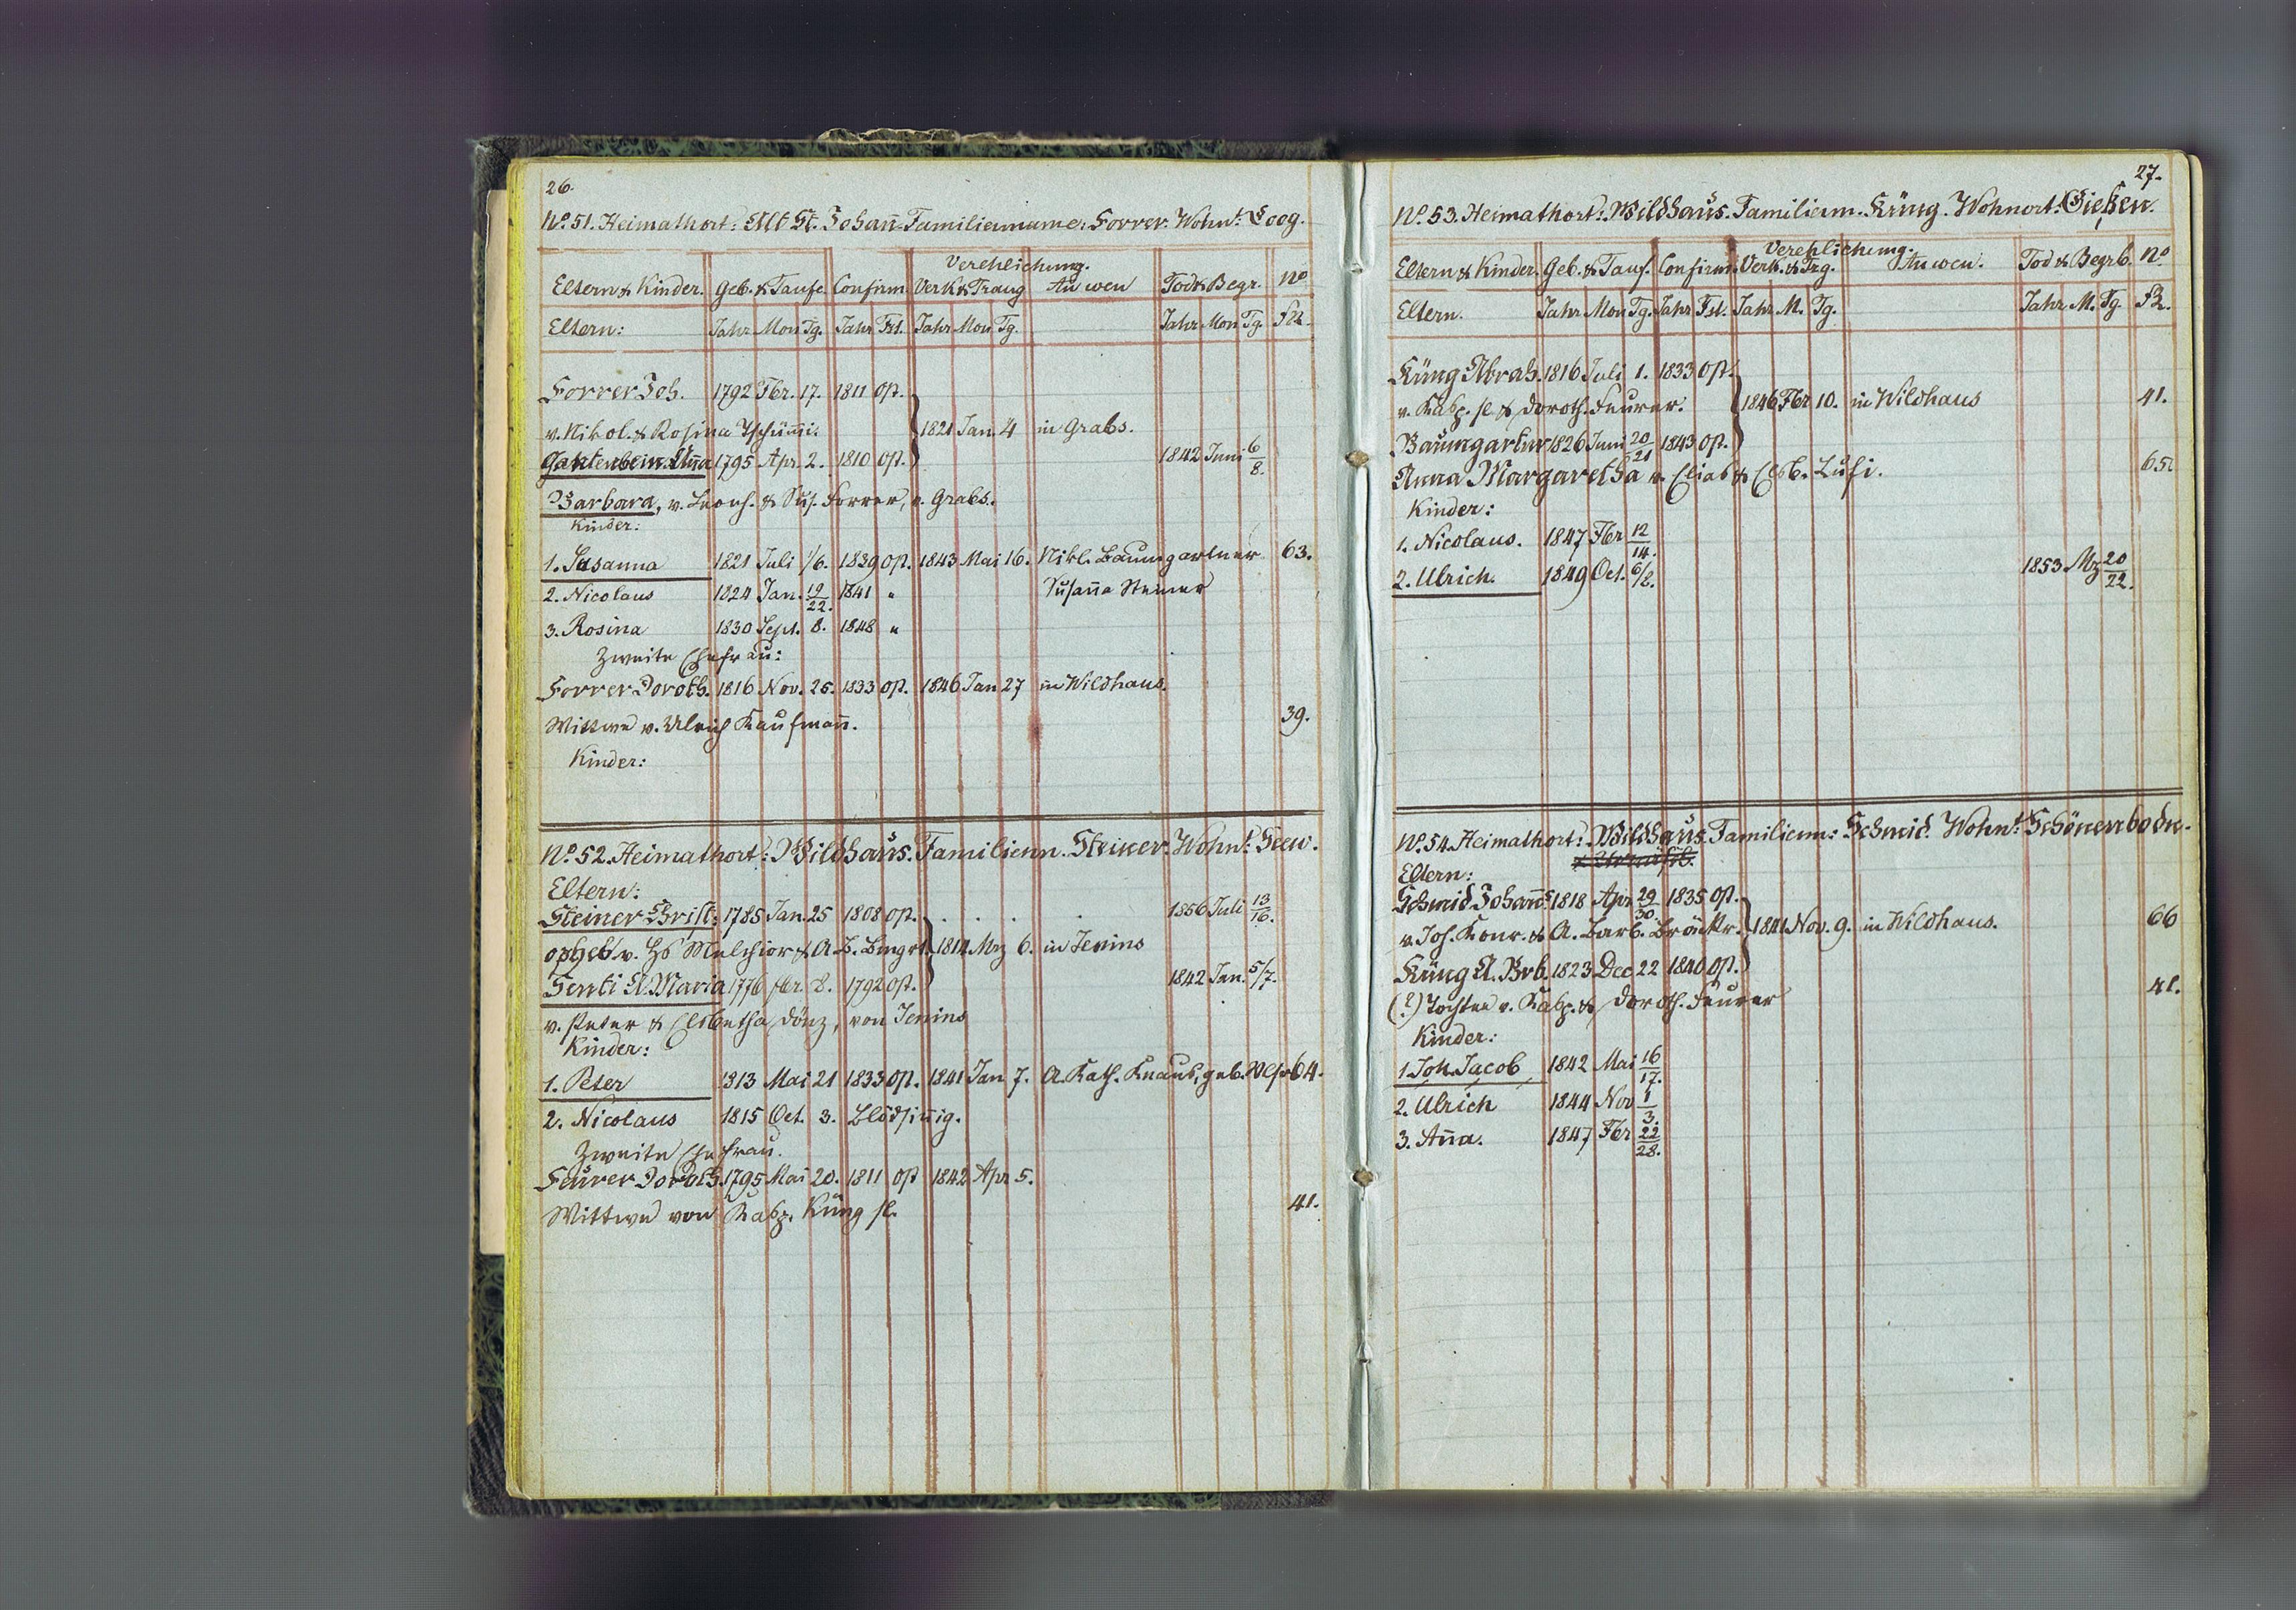 26.
No. 51. Heimathort: Alt St. Johañ. Familienname: Forrer. Wohnt: Boog.
Verehlichung.
Eltern & Kinder. Geb. & Taufe Confirm. Verk & Traug An wen Tod & Begr. No
Eltern: Jahr Mon Tg. Jahr Fst. Jahr Mon Tg. Jahr Mon Tg. FR.
Forrer Joh. 1792 Fbr. 17. 1811 Ost.
v. Nikol. & Rosina 1821 Jan. 4 in Grabs.
Gantenbein Aña 1795 Apr. 2. 1810 Ost. 1842 Juni 6/8.
Barbara, v. Leonh. & Sus. Forrer, v. Grabs.
Kinder:
1. Susanna 1821 Juli 1/6. 1839 Ost. 1843 Mai 16. Nikl. Baumgartner 63.
2. Nicolaus 1824 Jan. 19/22. 1841 " Susaña Steiner
3. Rosina 1830 Sept. 8. 1848 "
Zweite Ehefrau:
Forrer Doroth. 1816 Nov. 25. 1833 Ost. 1846 Jan 27 in Wildhaus.
Wittwe v. Ulrich Kaufmañ. 39.
Kinder:
No. 52. Heimathort: Wildhaus. Familienn. Steiner. Wohnt: Seew.
Eltern:
Steiner Christ- 1785 Jan. 25 1808 Ost. . . . . 1856 Juli 13/16.
opheb v. Hs Melchior & A. B. Bmgrt. 1814 Mrz 6. in Jenins
Senti A. Maria 1776 Fbr. 8. 1792 Ost. 1842 Jan. 5/7.
v. Peter & Elsbetha Dönz, von Jenins
Kinder:
1. Peter 1813 Mai 21 1833 Ost. 1841 Jan 7. A. Kath. Knaus, geb. 64.
2. Nicolaus 1815 Oct. 3. Blödsiñig.
Zweite Ehefrau.
Feurer Doroth. 1795 Mai 20. 1811 Ost 1842 Apr 5.
Wittwe von Kasp. Küng sl. 41.
27.
No. 53. Heimathort: Wildhaus. Familienn. Küng. Wohnort: Gießen.
Verehlichung.
Eltern & Kinder. Geb. & Tauf. Confirm. Verk. & Trg. An wen. Tod & Begrb. No
Eltern. Jahr Mon Tg. Jahr Fst. Jahr M. Tg. Jahr M. Tg. FR.
Küng Abrah. 1816 Juli 1. 1833 Ost.
v. Kasp. sl. & Doroth. Feurer. 1846 Fbr 10. in Wildhaus 41.
Baumgartner 1826 Juni 20/21 1843 Ost.
Anna Margaretha v. Elias & Elsb. Lusi. 65.
Kinder:
1. Nicolaus. 1847 Fbr 12/14.
2. Ulrich. 1849 Oct. 6/8. 1853 Mz 20/22.
No. 54. Heimathort: Wildhaus. Familienn: Schmid. Wohnt: Schönenbodn.
Eltern:
Schmid Johañs 1818 Apr 29/30. 1835 Ost.
v. Joh. Konr. & A. Barb. Bräkr. 1841 Nov. 9. in Wildhaus. 66
Küng A. Brb. 1823 Dec 22 1840 Ost.
(?) Tochter v. Kasp. & Doroth. Feurer 41.
Kinder:
1. Joh. Jacob 1842 Mai 16/17.
2. Ulrich 1844 Nov 1/3.
3. Aña. 1847 Fbr 22/28.